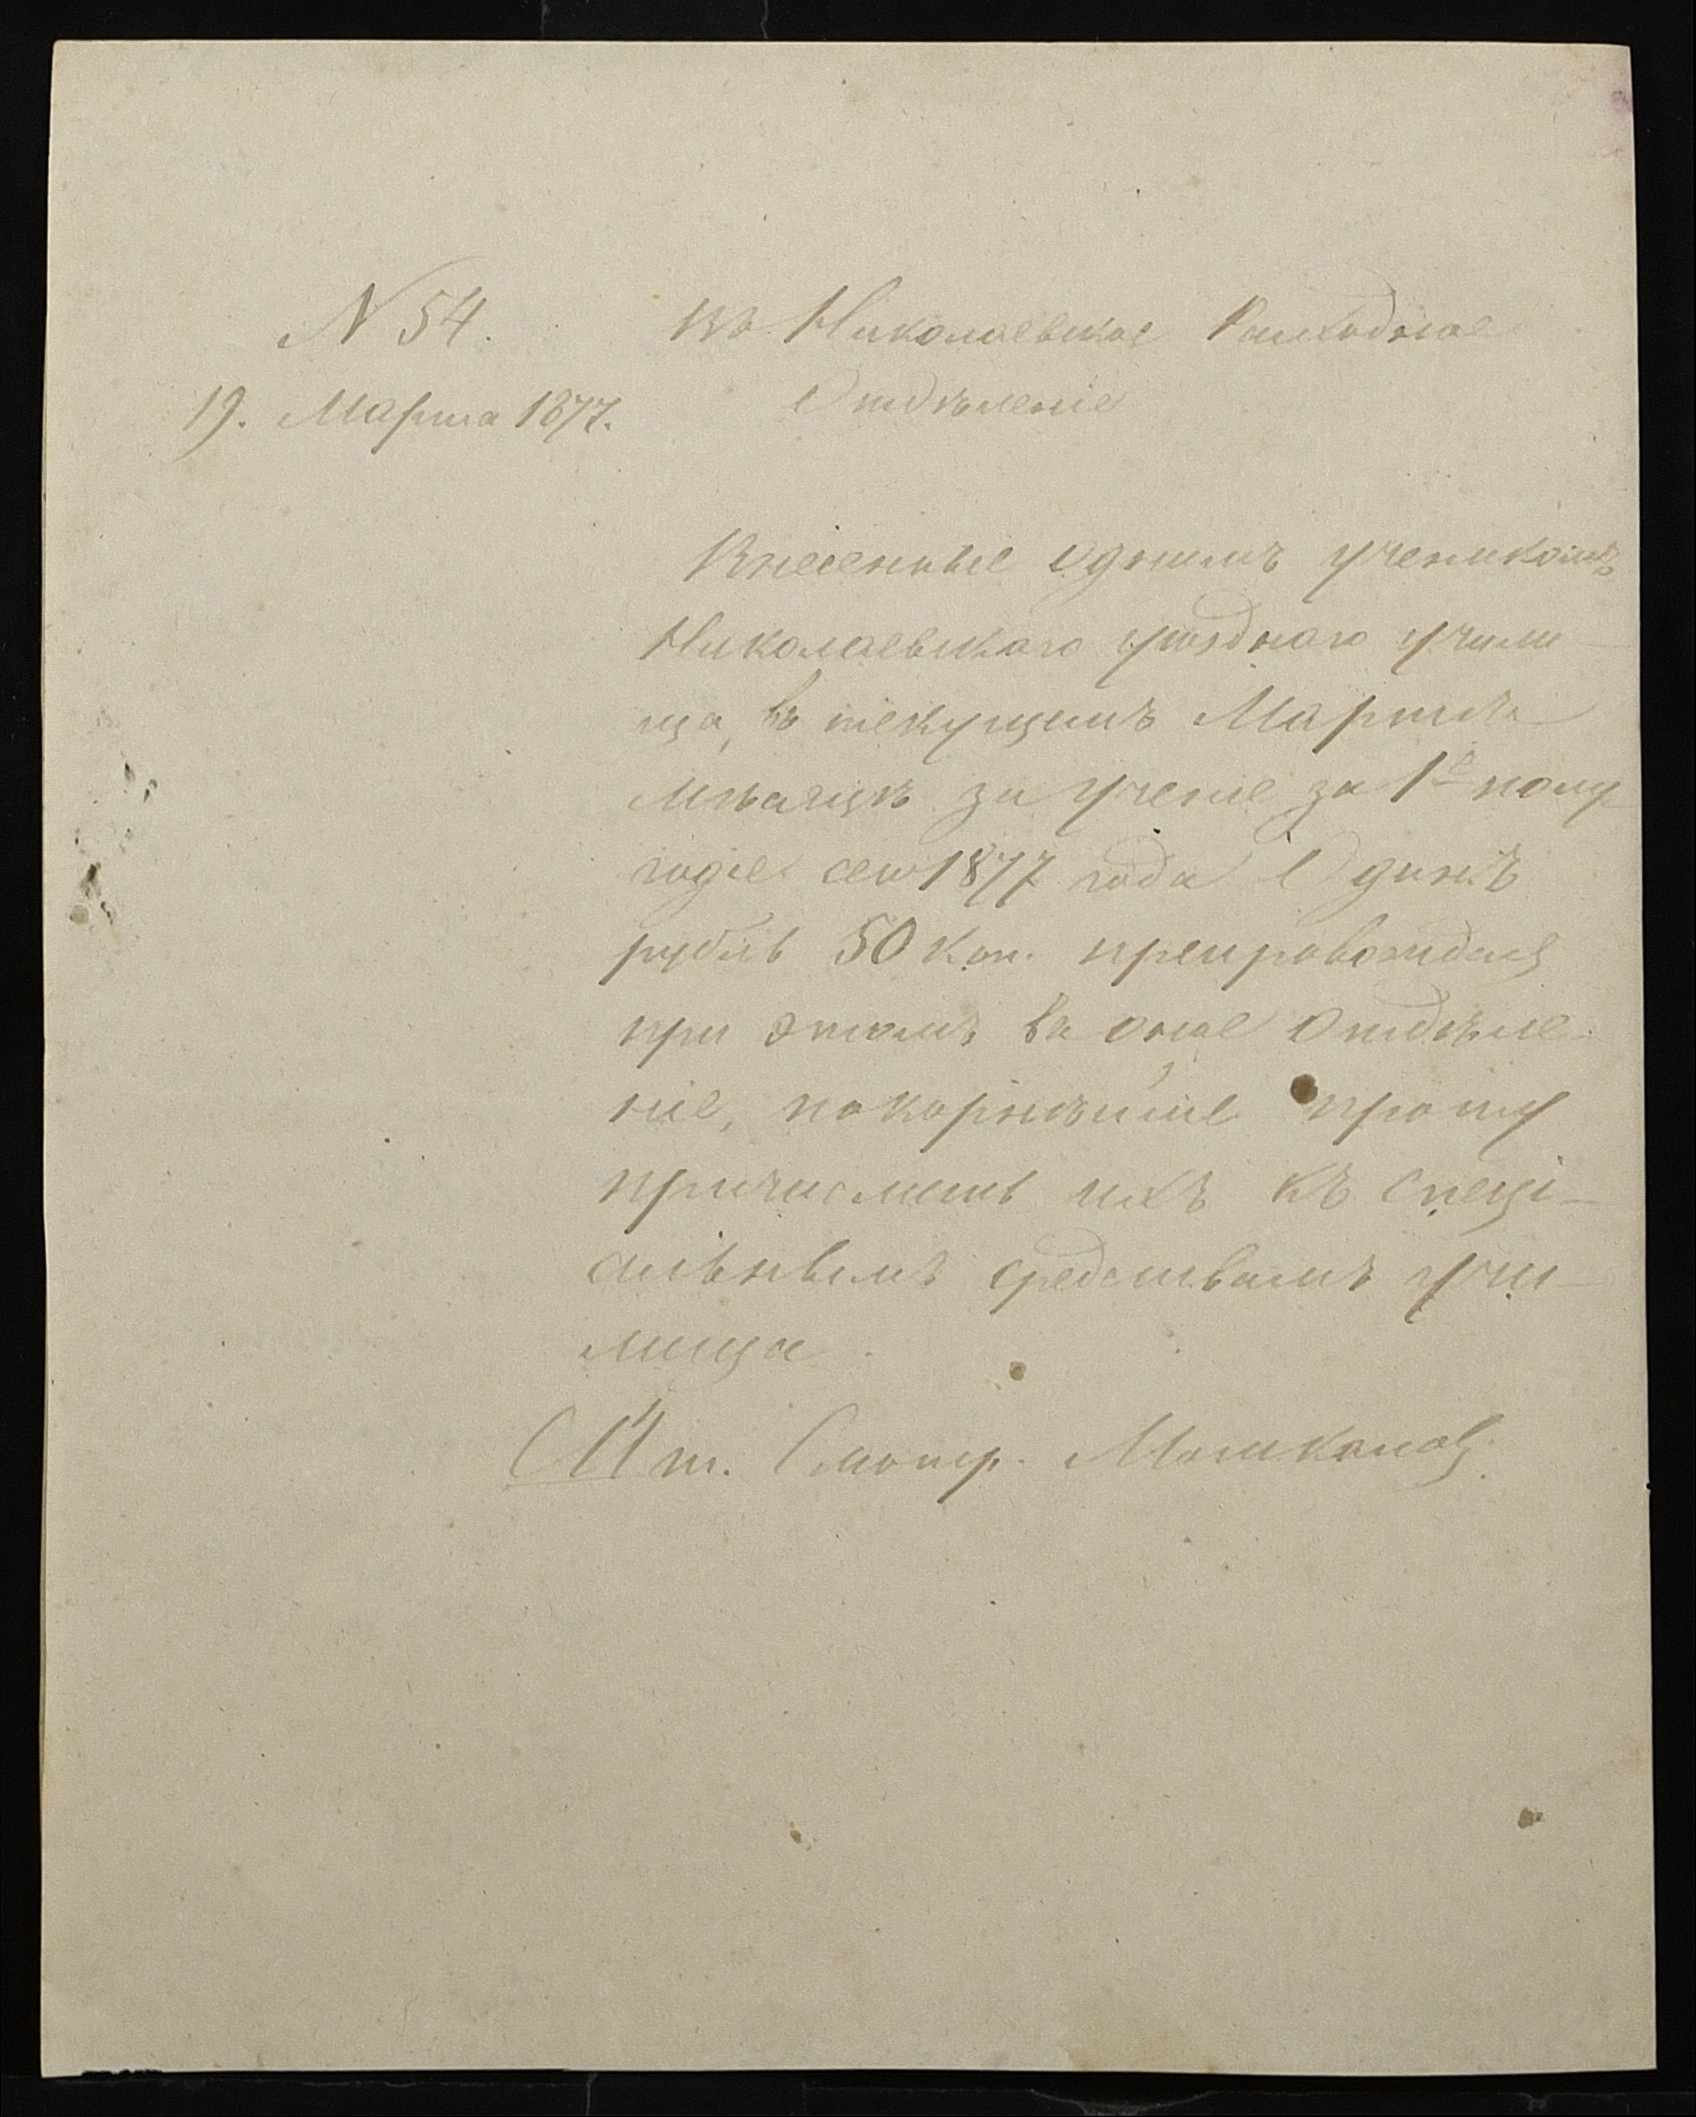 N 54.
19. Марта 1877.
Въ Николаевское Расходное
Отдѣленіе
Внесенные однимъ ученикомъ
Николаевскаго уѣзднаго учили
ща, въ текущемъ Мартѣ
мѣсяцѣ за ученіе за 1е полу
годіе сего 1877 года Одинъ
рубль 50 коп. препровождая
при этомъ въ оное Отдѣле-
ніе, покорнѣйше прошу
причислить ихъ къ спеці-
альнымъ средствамъ учи
лища.
Шт. Смотр.